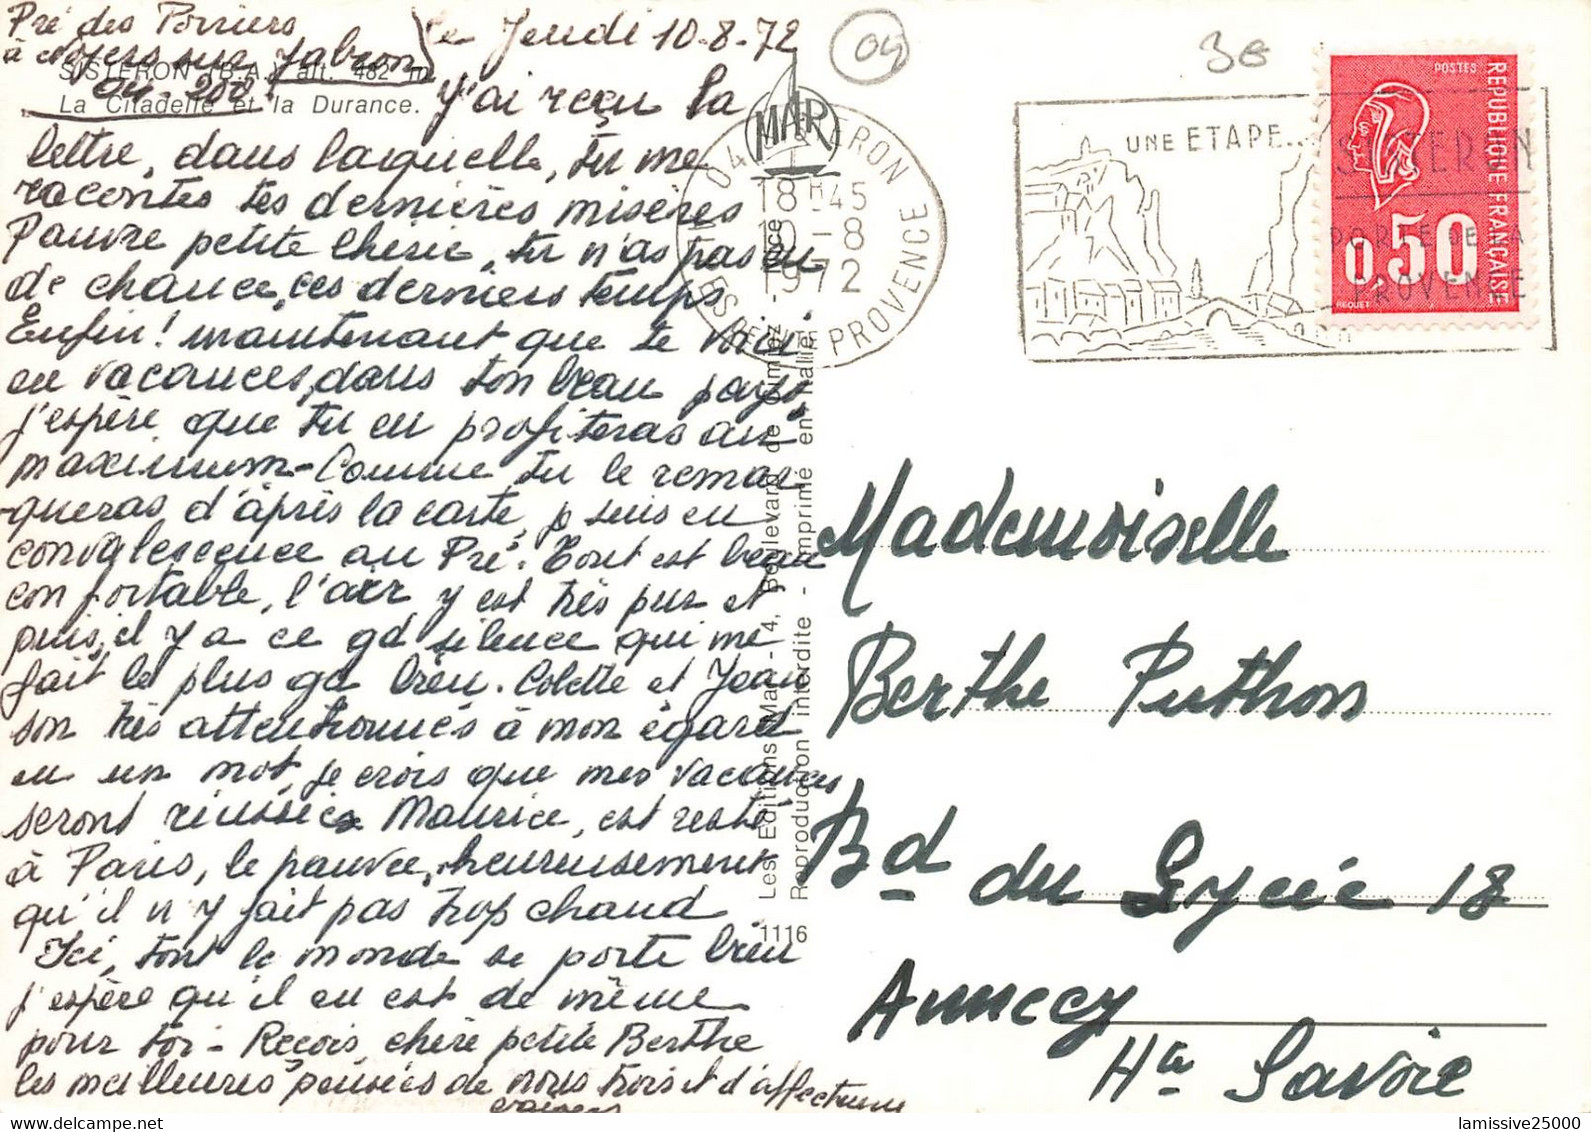 Pré des Poiriers
à Noyers sur Jabron
04-200
le Jeudi 10-8-72
04
3e
SISTERON (B.-A.) alt. 482 m
La Citadelle et la Durance.
J'ai reçu la
lettre, dans laquelle, tu me
racontes tes dernières misères
Pauvre petite chérie, tu n'as pas eu
de chance, ces derniers temps
Enfin! maintenant que te voici
en vacances, dans ton beau pays,
j'espère que tu en profiteras au
maximum - Comme tu le remar-
queras d'après la carte, je suis en
convalescence au Pré. Tout est beau
confortable, l'air y est très pur et
puis, il y a ce gd silence qui me
fait le plus gd bien. Colette et Jean
son très attentionnés à mon égard
en un mot, je crois que mes vacances
seront réussies Maurice, est resté
à Paris, le pauvre, heureusement
qu'il n'y fait pas trop chaud
Ici, tout le monde se porte bien
j'espère qu'il en est de même
pour toi - Reçois, chère petite Berthe
les meilleures pensées de nous trois et d'affectueux
baisers
MAR
04 SISTERON
18H45
10-8
1972
BASSES ALPES DE HAUTE PROVENCE
UNE ETAPE...
SISTERON
PORTE DE LA
PROVENCE
POSTES
REPUBLIQUE FRANÇAISE
0,50
BEQUET
Les Editions Mar - 4, Boulevard de Cimiez - Nice
Reproduction interdite - Imprimé en Italie
1116
Mademoiselle
Berthe Puthon
Bd du Lycée 18
Annecy
Hte Savoie
lamissive25000